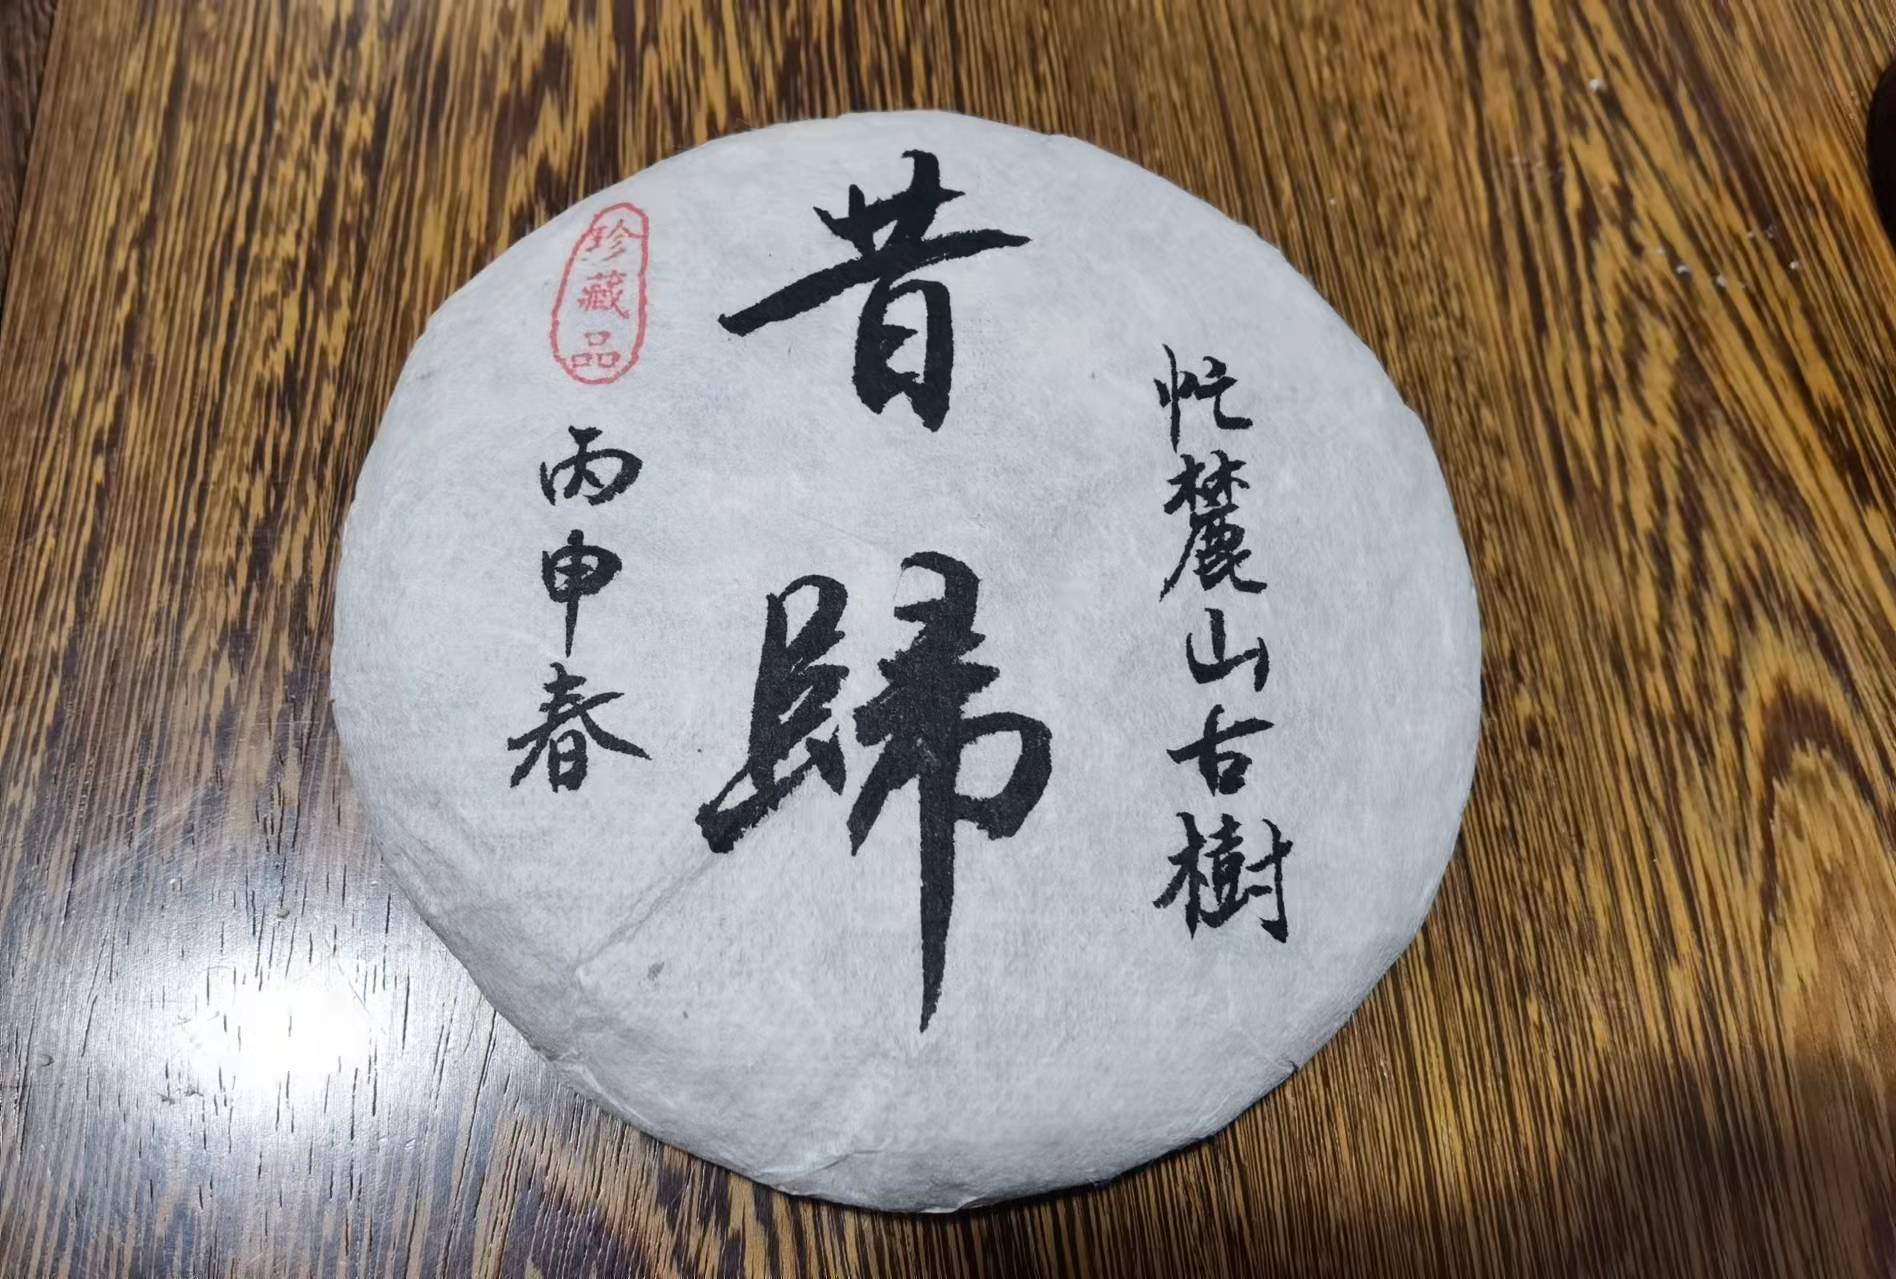 忙麓山古樹
昔歸
珍藏品
丙申春